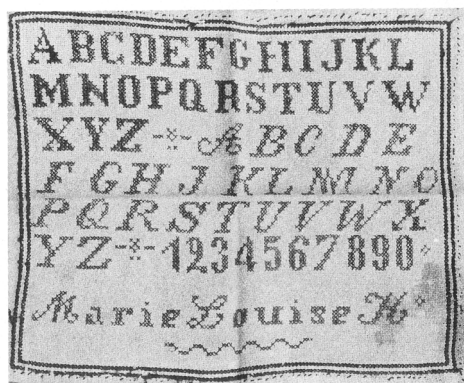 ABCDEFGHIJKL
MNOPQRSTUVW
XYZ ABCDE
FGHJKLMNO
PQRSTUVWX
YZ 1234567890
Marie Louise H°